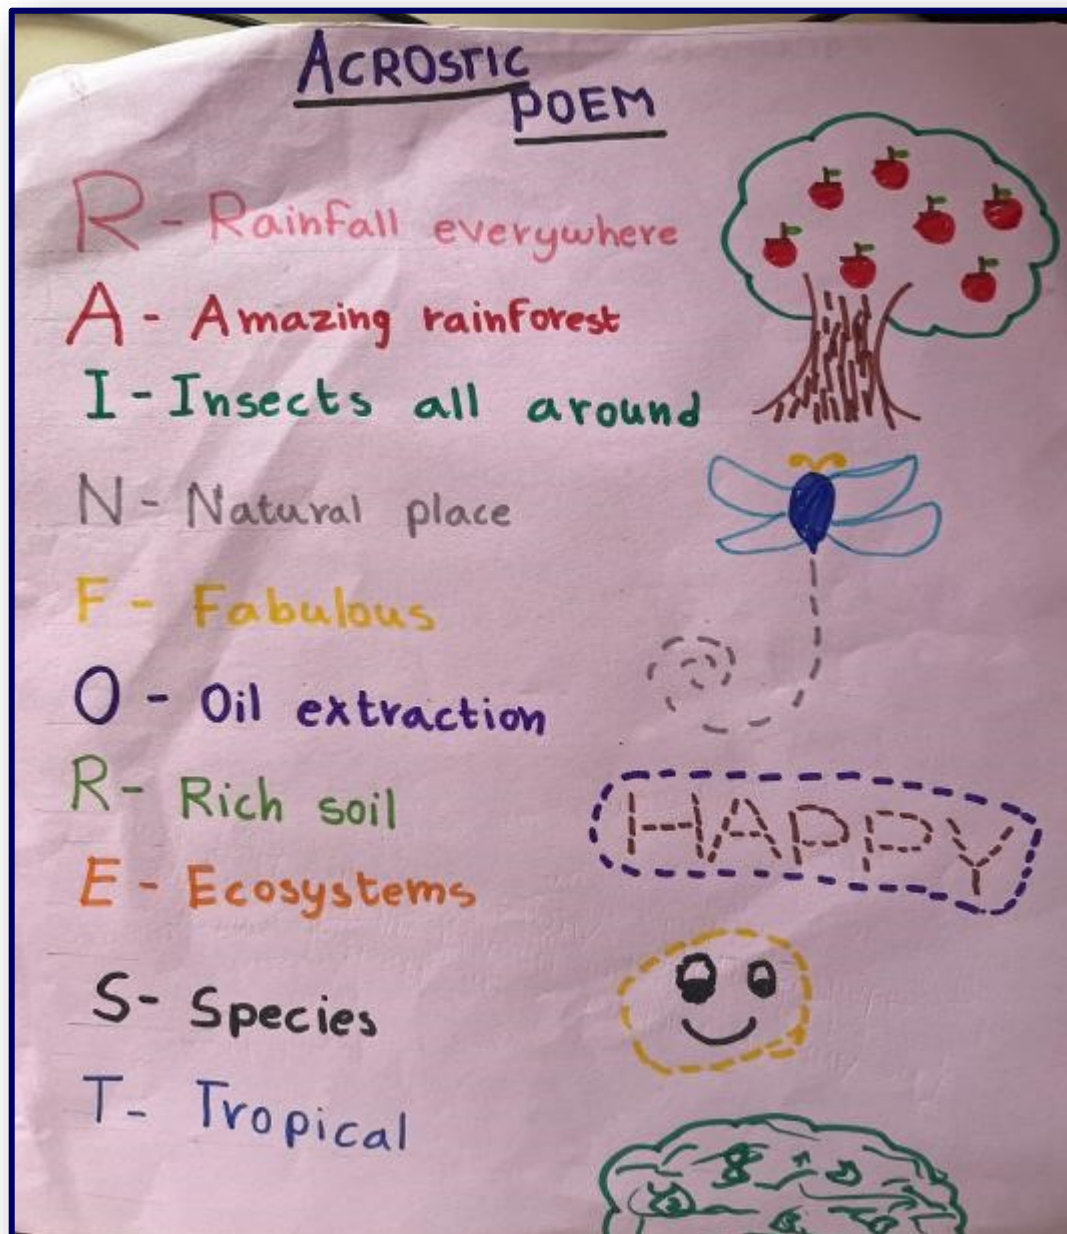 ACROSTIC
POEM
R - Rainfall everywhere
A - Amazing rainforest
I - Insects all around
N - Natural place
F - Fabulous
O - Oil extraction
R - Rich soil
HAPPY
E - Ecosystems
S - Species
T - Tropical